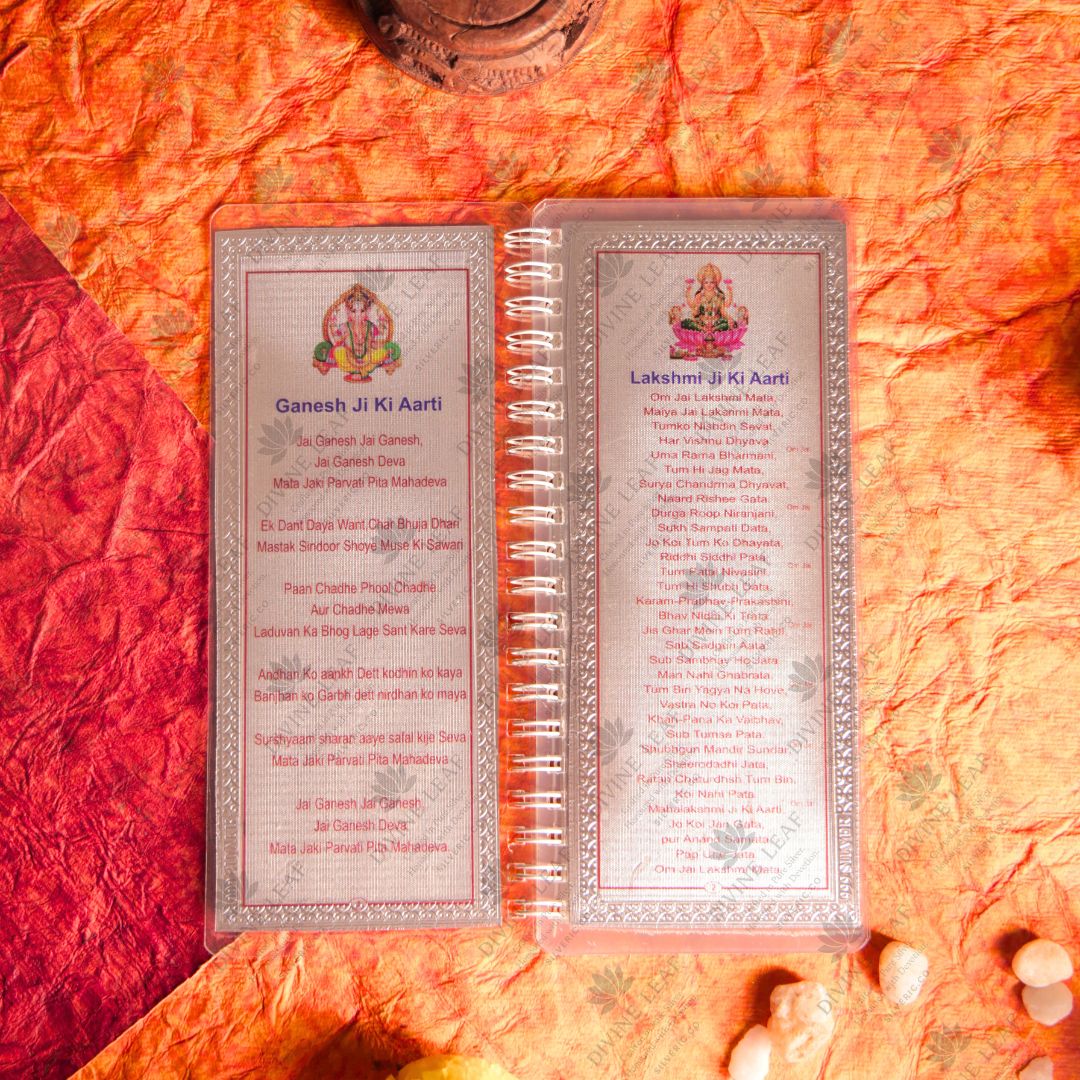 Ganesh Ji Ki Aarti
Jai Ganesh Jai Ganesh,
Jai Ganesh Deva
Mata Jaki Parvati Pita Mahadeva
Ek Dant Daya Want Char Bhuja Dhari
Mastak Sindoor Shoye Muse Ki Sawari
Paan Chadhe Phool Chadhe
Aur Chadhe Mewa
Laduvan Ka Bhog Lage Sant Kare Seva
Andhan Ko aankh Dett kodhin ko kaya
Banjhan ko Garbh dett nirdhan ko maya
Surshyaam sharan aaye safal kije Seva
Mata Jaki Parvati Pita Mahadeva
Jai Ganesh Jai Ganesh,
Jai Ganesh Deva
Mata Jaki Parvati Pita Mahadeva.
Lakshmi Ji Ki Aarti
Om Jai Lakshmi Mata,
Maiya Jai Lakshmi Mata,
Tumko Nishdin Sevat,
Har Vishnu Dhyava
Uma Rama Bharmani,
Tum Hi Jag Mata,
Surya Chandrma Dhyavat,
Naard Rishee Gata.
Durga Roop Niranjani,
Sukh Sampati Data,
Jo Koi Tum Ko Dhayata,
Riddhi Siddhi Pata,
Tum Patal Nivasini,
Tum Hi Shubh Data,
Karam-Prabhav-Prakashini,
Bhav Nidhi Ki Trata
Jis Ghar Mein Tum Rahti
Sab Sadgun Aata,
Sub Sambhav Ho Jata
Man Nahi Ghabrata.
Tum Bin Yagya Na Hove,
Vastra No Koi Pata,
Khan-Pana Ka Vaibhav,
Sub Tumse Pata.
Shubhgun Mandir Sundar,
Sheerodadhi Jata,
Ratan Chaturdhsh Tum Bin,
Koi Nahi Pata
Mahalakshmi Ji Ki Aarti
Jo Koi Jan Gata,
pur Anand Samata
Pap Jata
Om Jai Lakshmi Mata,
2
DIVINE LEAF
SILVERIC.CO